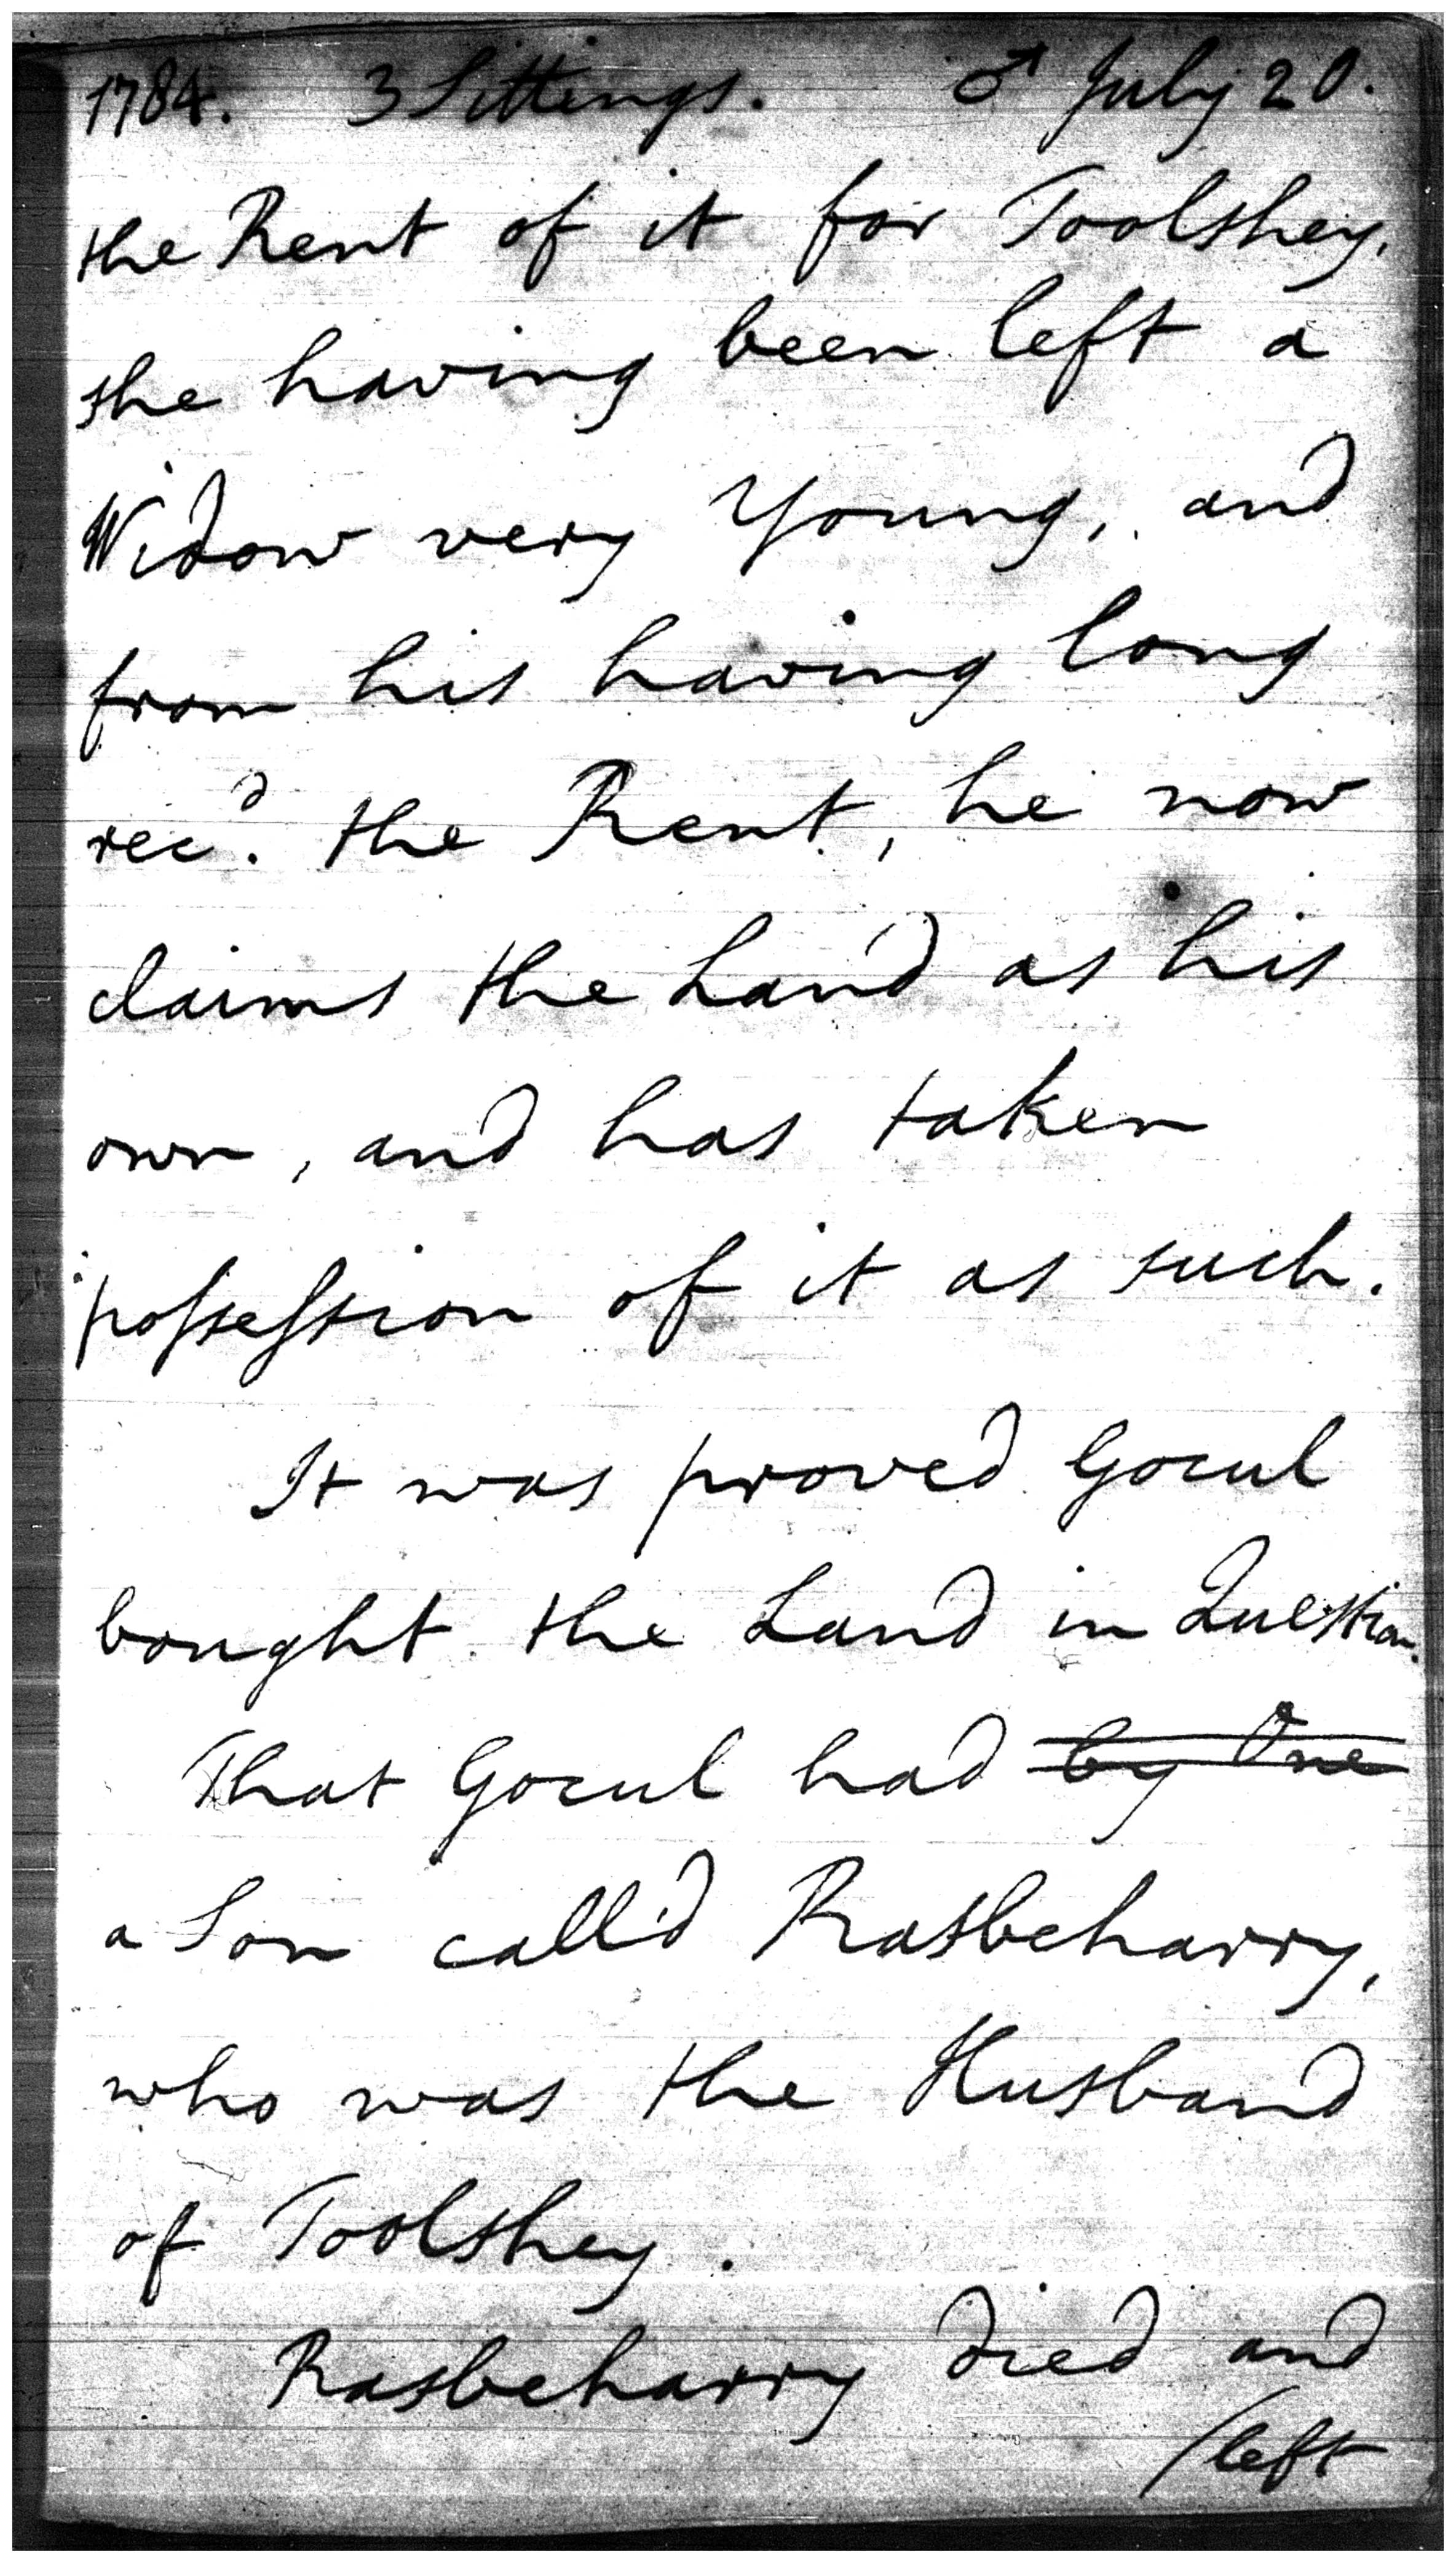 1784. 3 Sittings. ♂ July 20.
the Rent of it for Toolshey,
she having been left a
Widow very Young, and
from his having long
rec.d the Rent, he now
claims the Land as his
own, and has taken
possession of it as such.
It was proved Gocul
bought the Land in Question.
That Gocul had by One
a Son call'd Rasbeharry,
who was the Husband
of Toolshey.
Rasbeharry died and
/left